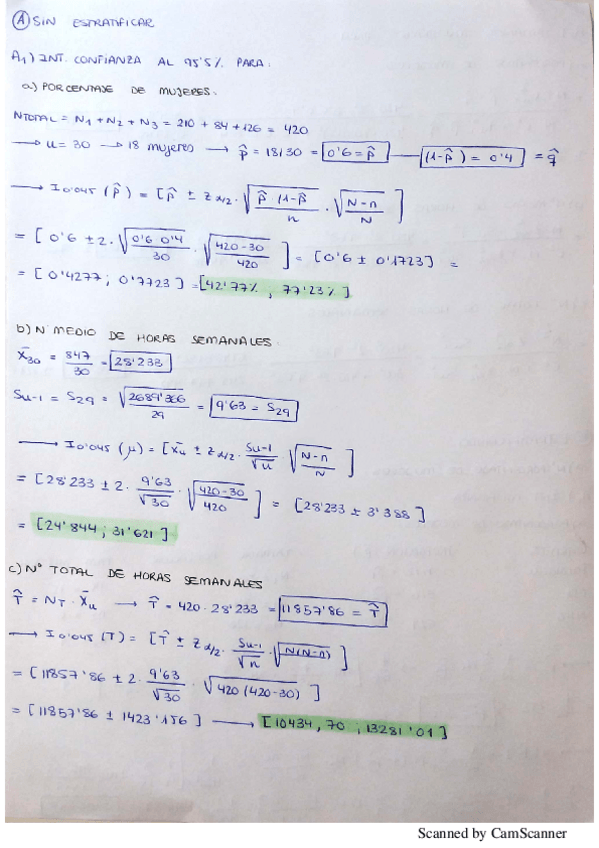 Ⓐ SIN ESTRATIFICAR
A₁) INT. CONFIANZA AL 95'5% PARA:
a) PORCENTAJE DE MUJERES:
NTOTAL = N₁ + N₂ + N₃ = 210 + 84 + 126 = 420
→ n = 30 → 18 mujeres → p̂ = 18/30 = 0'6 = p̂ — (1-p̂) = 0'4 = q̂
→ I₀'₀₄₅ (p̂) = [p̂ ± z α/2 · √(p̂ (1-p̂)/n) · √((N-n)/N)]
= [0'6 ± 2 · √(0'6 0'4/30) · √((420-30)/420)] = [0'6 ± 0'1723] =
= [0'4277 ; 0'7723] = [42'77% , 77'23%]
b) Nº MEDIO DE HORAS SEMANALES
x̄₃₀ = 847/30 = 28'233
Sn-1 = S₂₉ = √(2689'366/29) = 9'63 = S₂₉
→ I₀'₀₄₅ (μ) = [x̄n ± z α/2 · Sn-1/√n · √((N-n)/N)]
= [28'233 ± 2 · 9'63/√30 · √((420-30)/420)] = [28'233 ± 3'388]
= [24'844 ; 31'621]
c) Nº TOTAL DE HORAS SEMANALES
T̂ = NT · x̄n → T̂ = 420 · 28'233 = 11857'86 = T̂
→ I₀'₀₄₅ (T) = [T̂ ± z α/2 · Sn-1/√n · √(N(N-n))]
= [11857'86 ± 2 · 9'63/√30 · √(420 (420-30))]
= [11857'86 ± 1423'156] → [10434,70 ; 13281'01]
Scanned by CamScanner